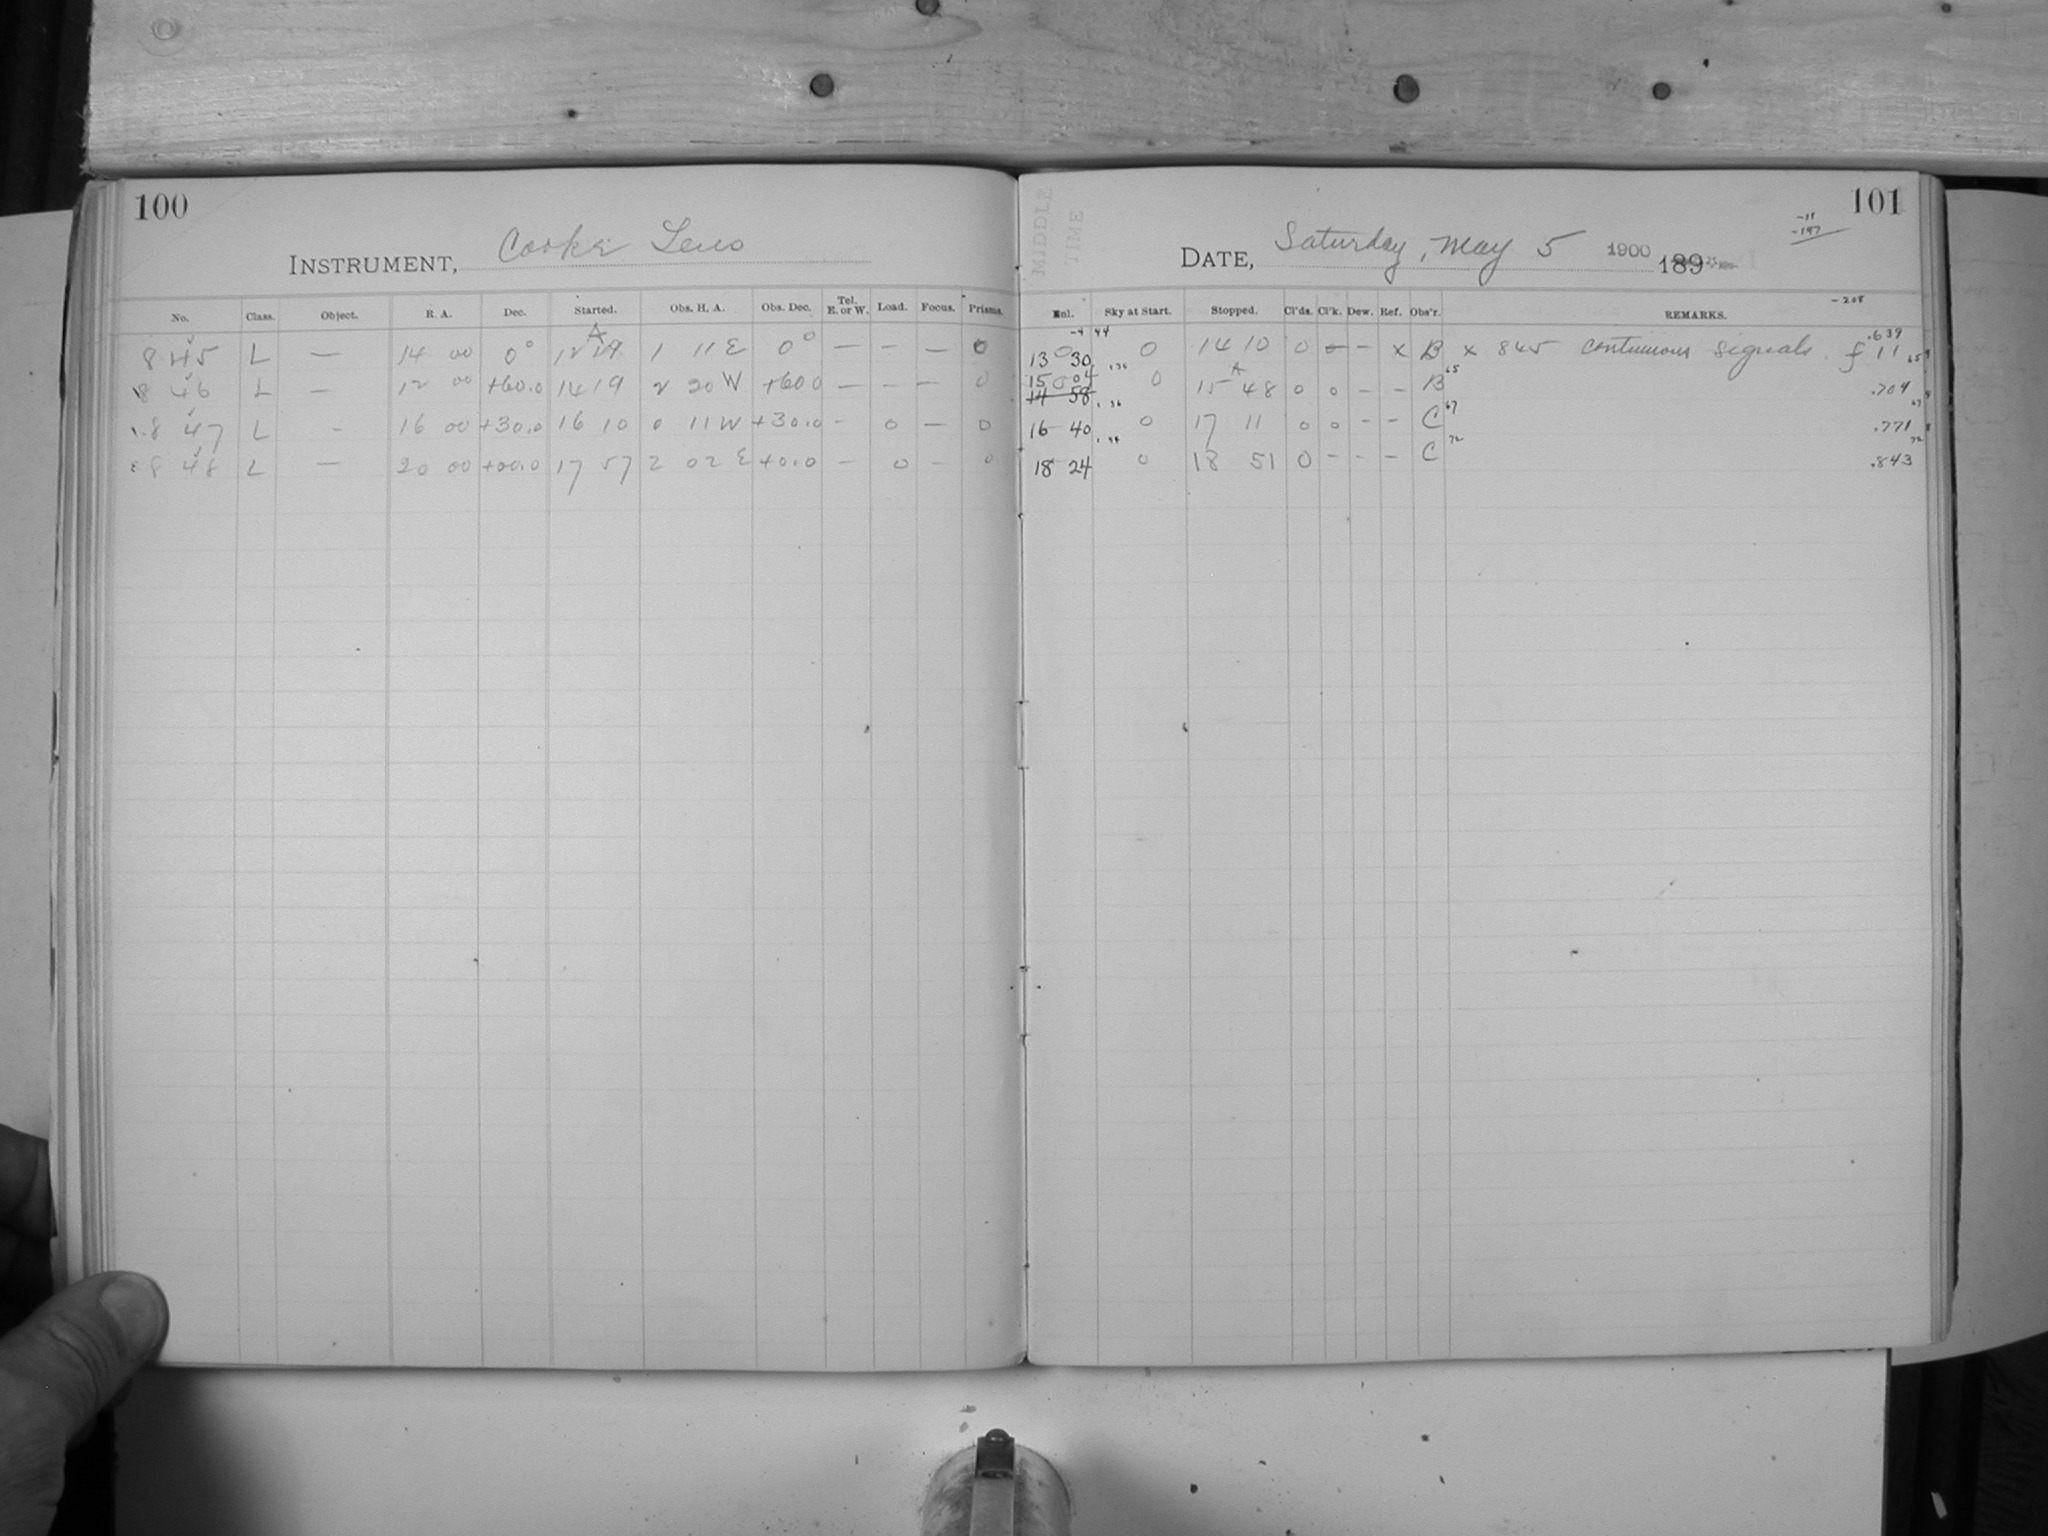 100
INSTRUMENT, Cooke Lens
No. Class. Object. R. A. Dec. Started. Obs. H. A. Obs. Dec. Tel. E. or W. Load. Focus. Prisms.
A
845 L — 14 00 0° 12 29 1 11 E 0° — — — 0
846 L — 12 00 +60.0 14 19 2 20 W +60 0 — — — 0
847 L - 16 00 +30.0 16 10 0 11 W +30.0 - 0 — 0
848 L — 20 00 +00.0 17 57 2 02 E +0.0 - 0 - 0
MIDDLE
TIME
101
-11
-197
DATE, Saturday, May 5 1900 189
-208
Sky at Start. Stopped. Cl'ds. Cl'k. Dew. Ref. Obs'r. REMARKS.
-4 44 .639
13 30 0 14 10 0 — — x B x 845 continuous signals. f 11 65
15 04 0 A 15 48 0 0 - - B 65 .704
14 58 .36 67
16 40 0 17 11 0 0 - - C 67 .771
.44 72
18 24 0 18 51 0 - - - C 72 .843